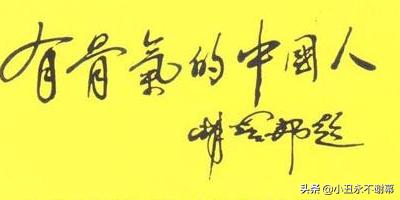 有骨氣的中國人
胡耀邦題
头条 @小丑永不谢幕